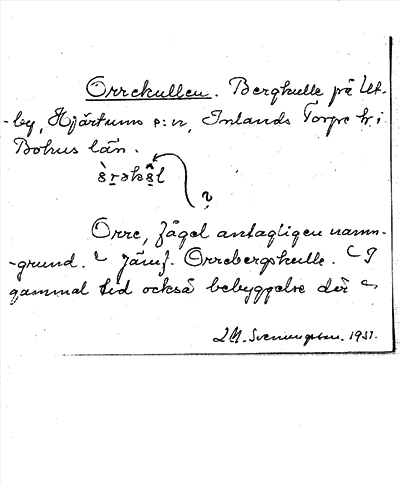 Orrekullen. Bergkulle på Ut-
-by, Hjärtums s:n, Inlands Torpe hd i
Bohus län.
?
Orre, fågel antagligen namn-
-grund. Jämf. Orrebergskulle. I
gammal tid också bebyggelse där
1931.